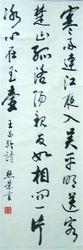 寒雨連江夜入吳平明送客
楚山孤洛陽親友如相問一片
冰心在玉壺 王昌齡詩